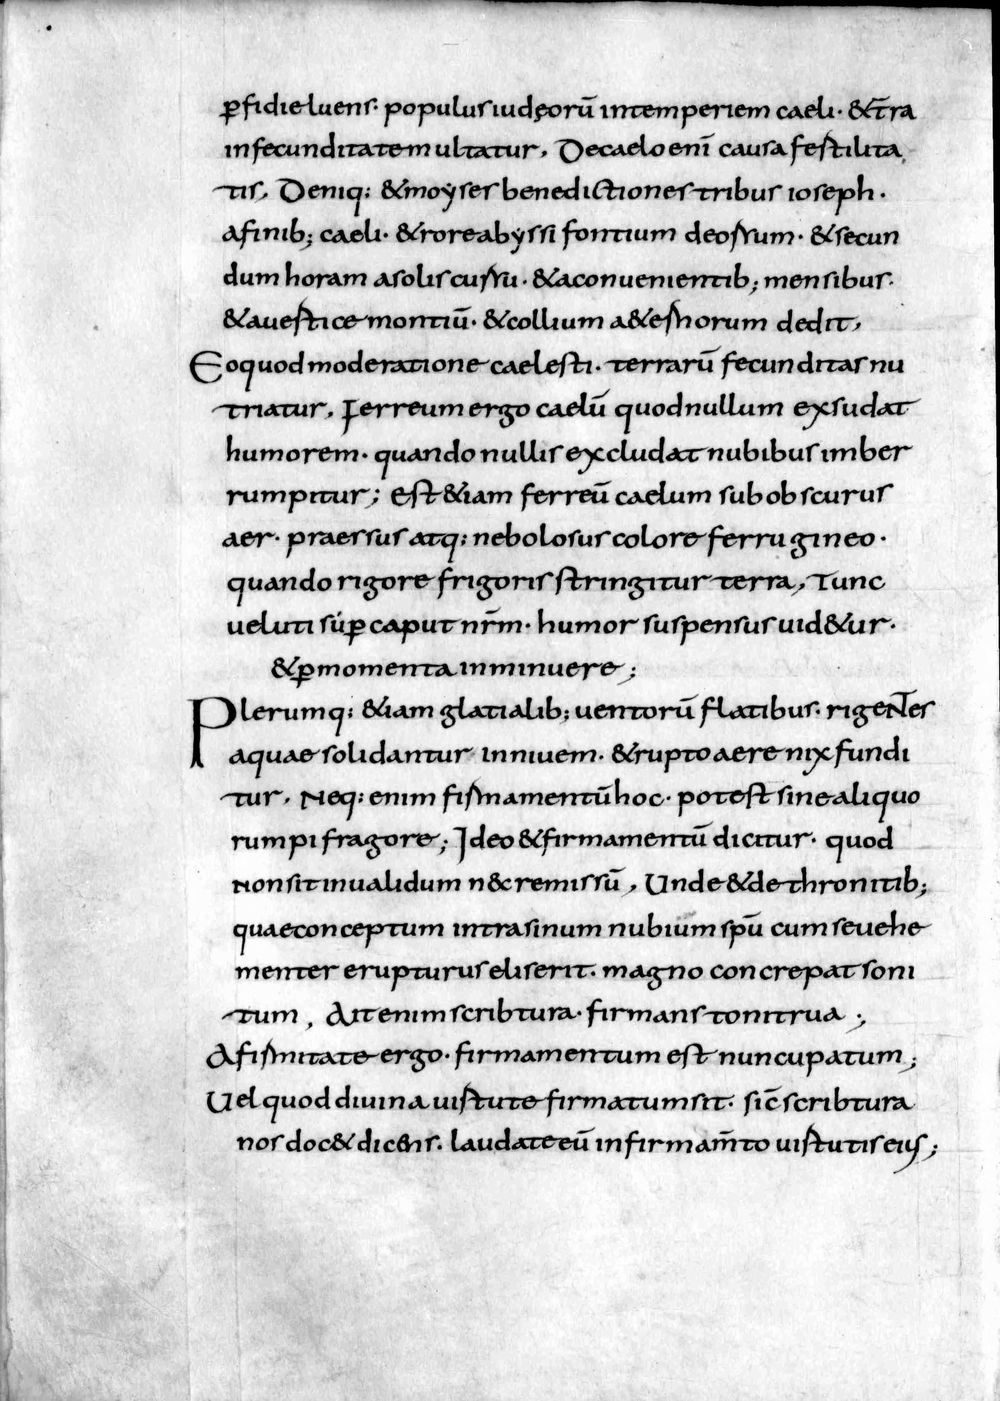 ꝑfidie luens· populus iudęorū intemperiem caeli· & t̄ra
infecunditate multatur, De caelo enī causa fertilita
tis, Deniq: & moẏses benedictiones tribus ioseph·
a finib; caeli· & rore abẏssi fontium deorsum· & secun
dum horam a solis cursu· & a conuenientib; mensibus·
& a uertice montiū· & collium a&ernorum dedit,
Eo quod moderatione caelesti· terrarū fecunditas nu
triatur, Ferreum ergo caelū quod nullum exsudat
humorem· quando nullis excludat nubibus imber
rumpitur; Est &iam ferreū caelum sub obscurus
aer· praessus atq: nebolosus colore ferrugineo·
quando rigore frigoris stringitur terra, Tunc
ueluti suꝑ caput nr̄m· humor suspensus uid&ur·
& ꝑ momenta inminuere;
Plerumq: &iam glatialib; uentorū flatibus· rigeNTes
aquae solidantur in niuem· & rupto aere nix fundi
tur, Neq: enim firmamentū hoc· potest sine aliquo
rumpi fragore; Ideo & firmamentū dicitur· quod
non sit inualidum n&c remissū, Unde & de thronitib;
quae conceptum intra sinum nubium sp̄u cum se uehe
menter erupturus eliserit· magno concrepat soni
tum, Ait enim scribtura· firmans tonitrua;
A firmitate ergo· firmamentum est nuncupatum;
Uel quod diuina uirtute firmatum sit· sic̄ scribtura
nos doc& dicens· laudate eū in firmam̄to uirtutis eius;